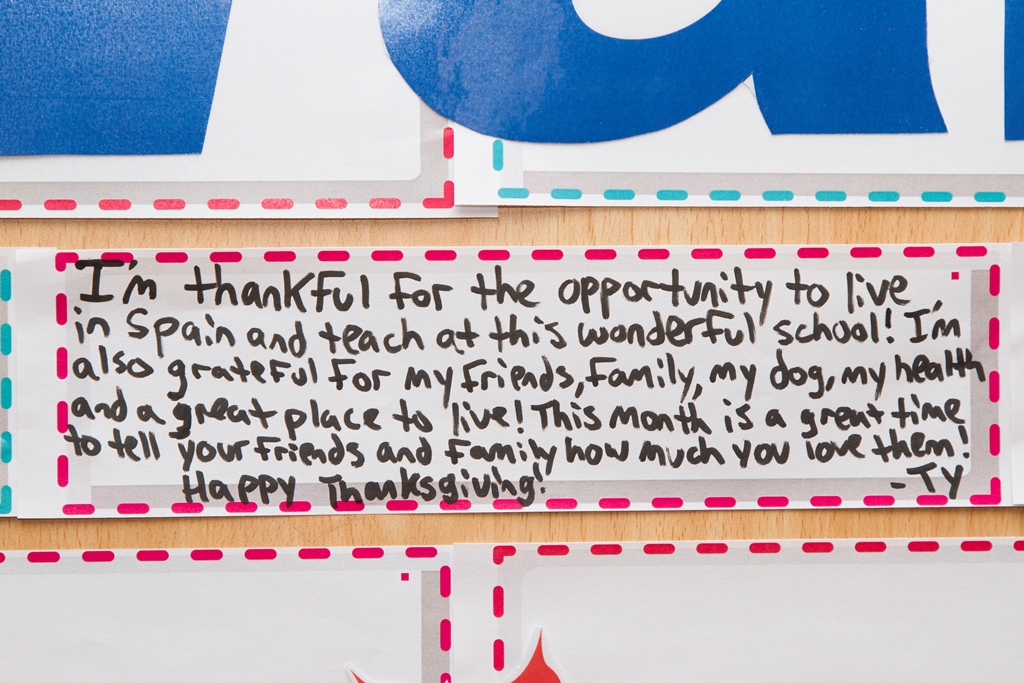 I'm thankful for the opportunity to live
in Spain and teach at this wonderful school! I'm
also grateful for my friends, family, my dog, my health
and a great place to live! This month is a great time
to tell your friends and family how much you love them!
Happy Thanksgiving!
-TY